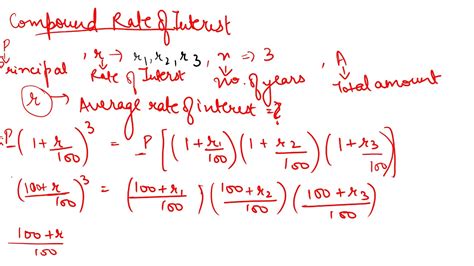 Compound Rate of Interest
P
Principal , r → r1, r2, r3 , n ⇒ 3 , A
Rate of Interest No. of years Total amount
r → Average rate of interest = ?
= P (1 + r/100)^3 = P [(1 + r1/100)(1 + r2/100)(1 + r3/100)]
(100+r/100)^3 = (100+r1/100)(100+r2/100)(100+r3/100)
100+r/100